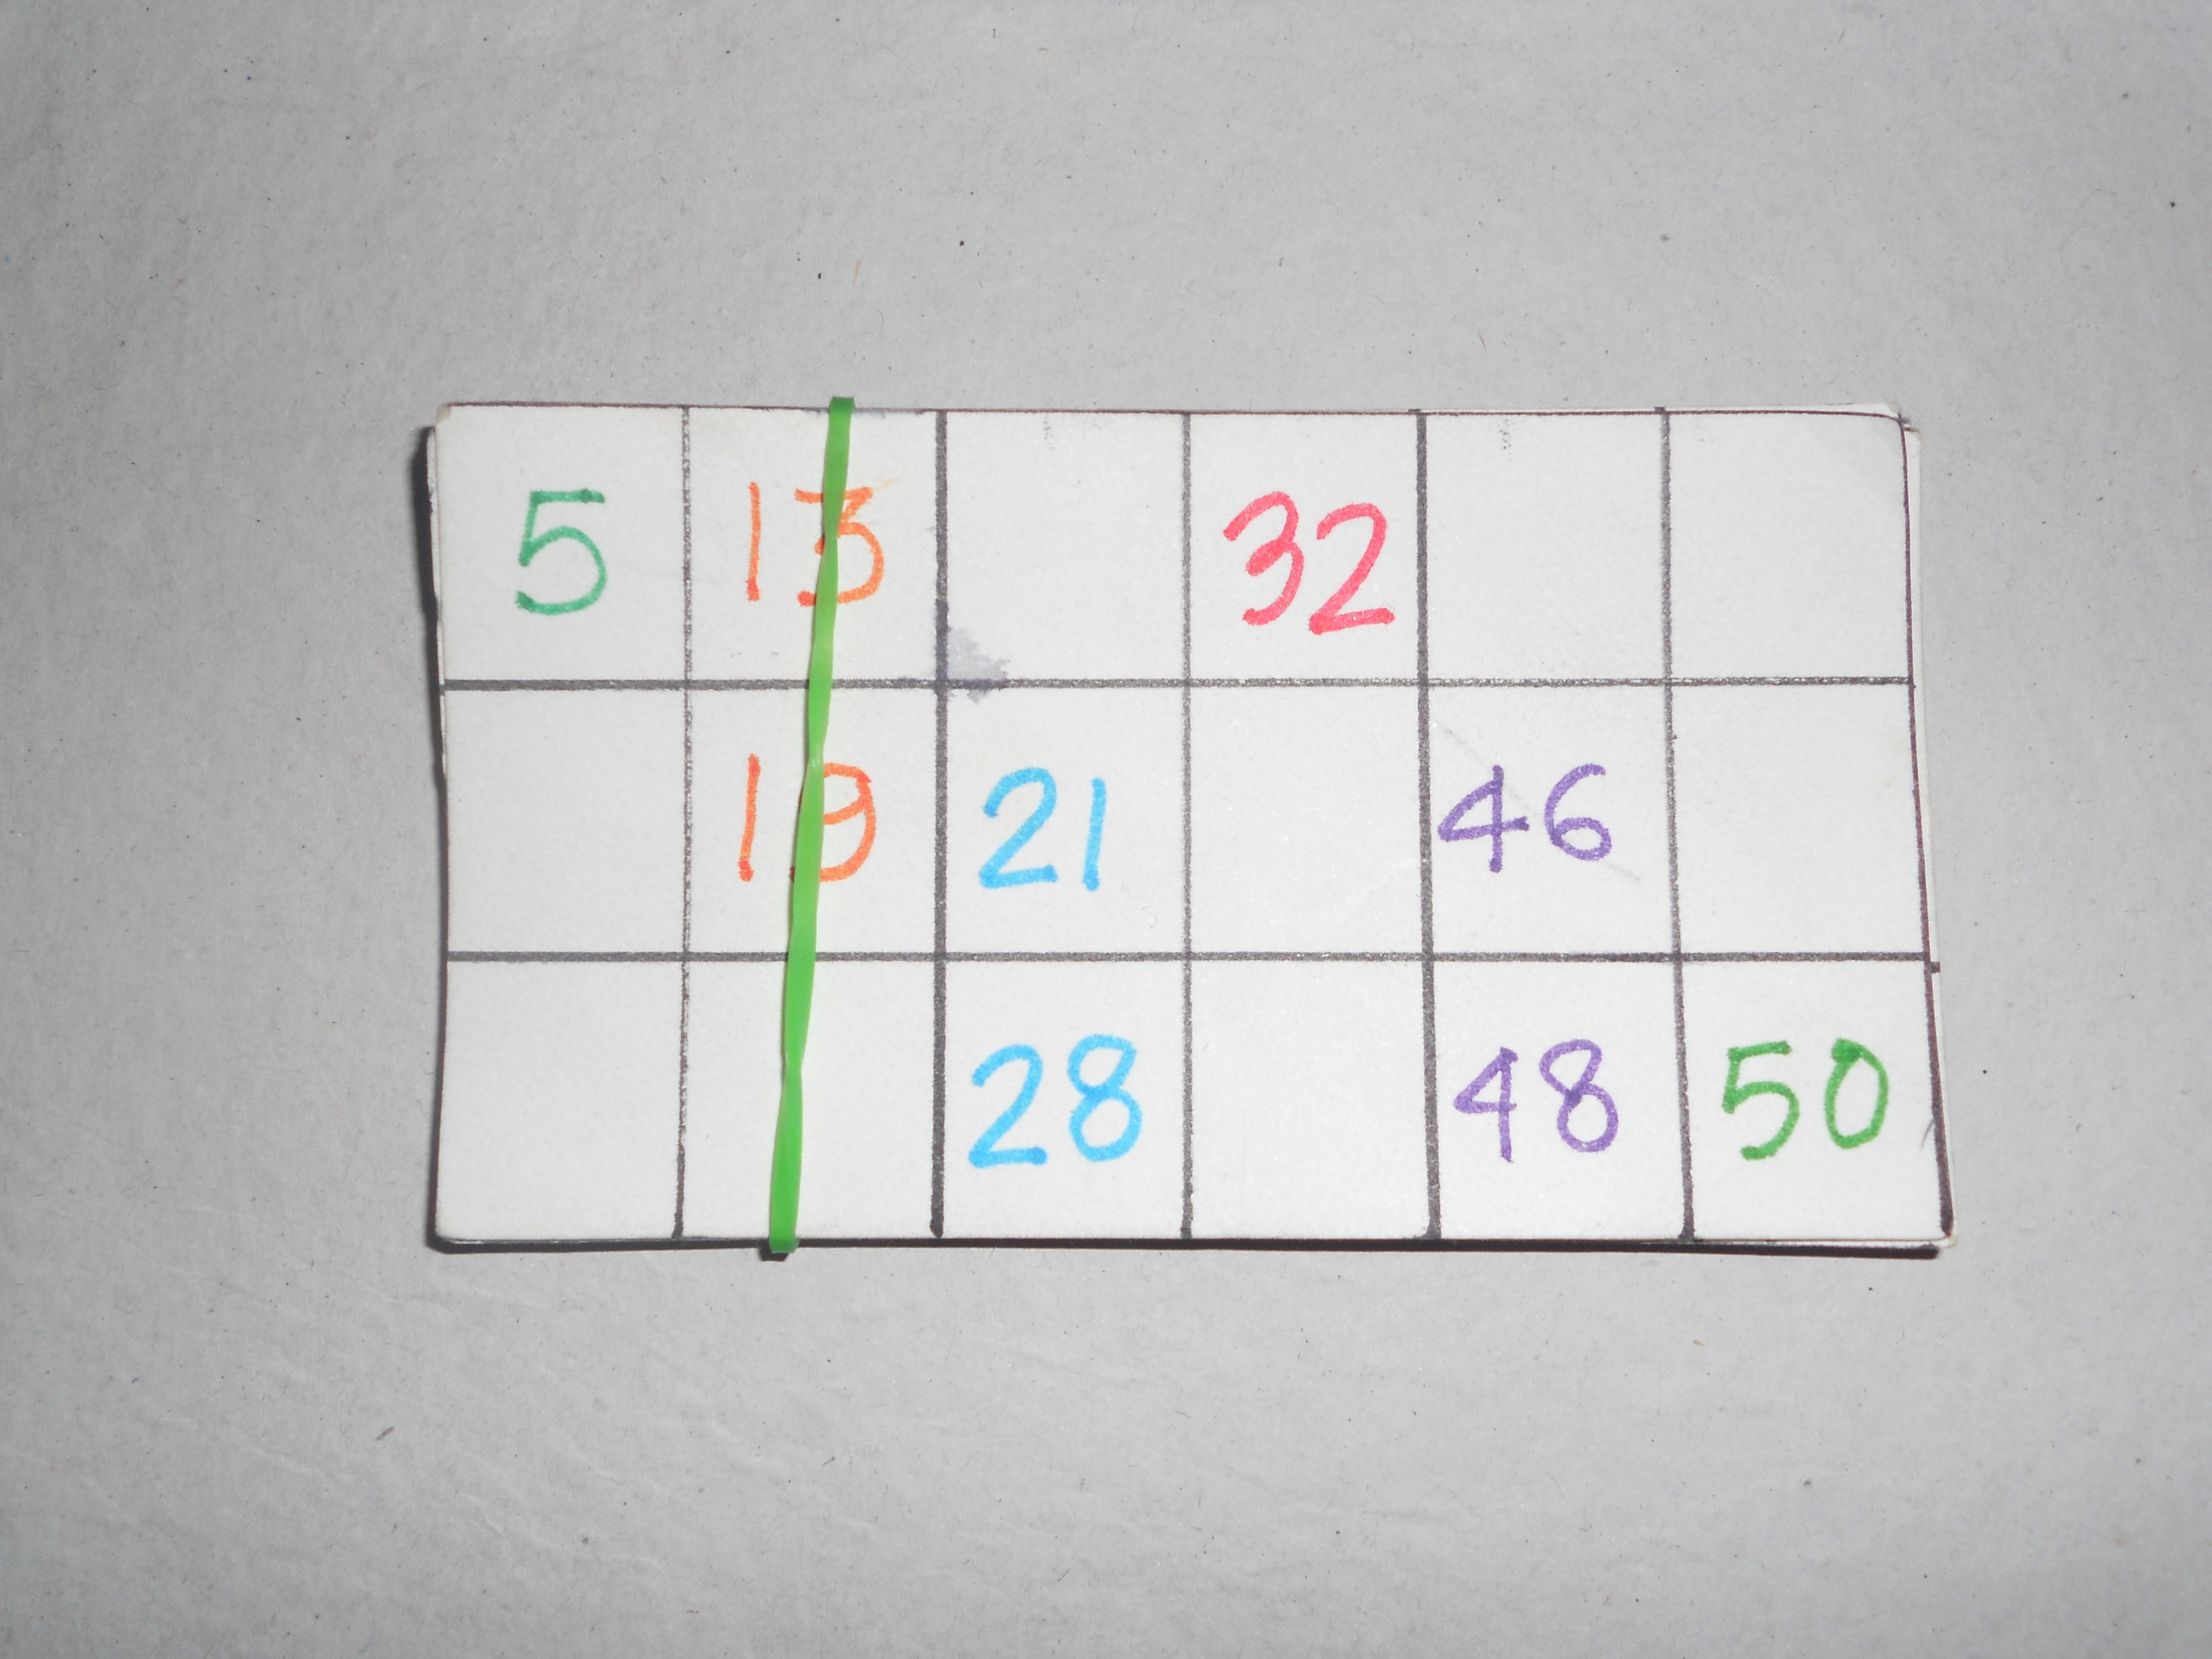 5 13 32
19 21 46
28 48 50